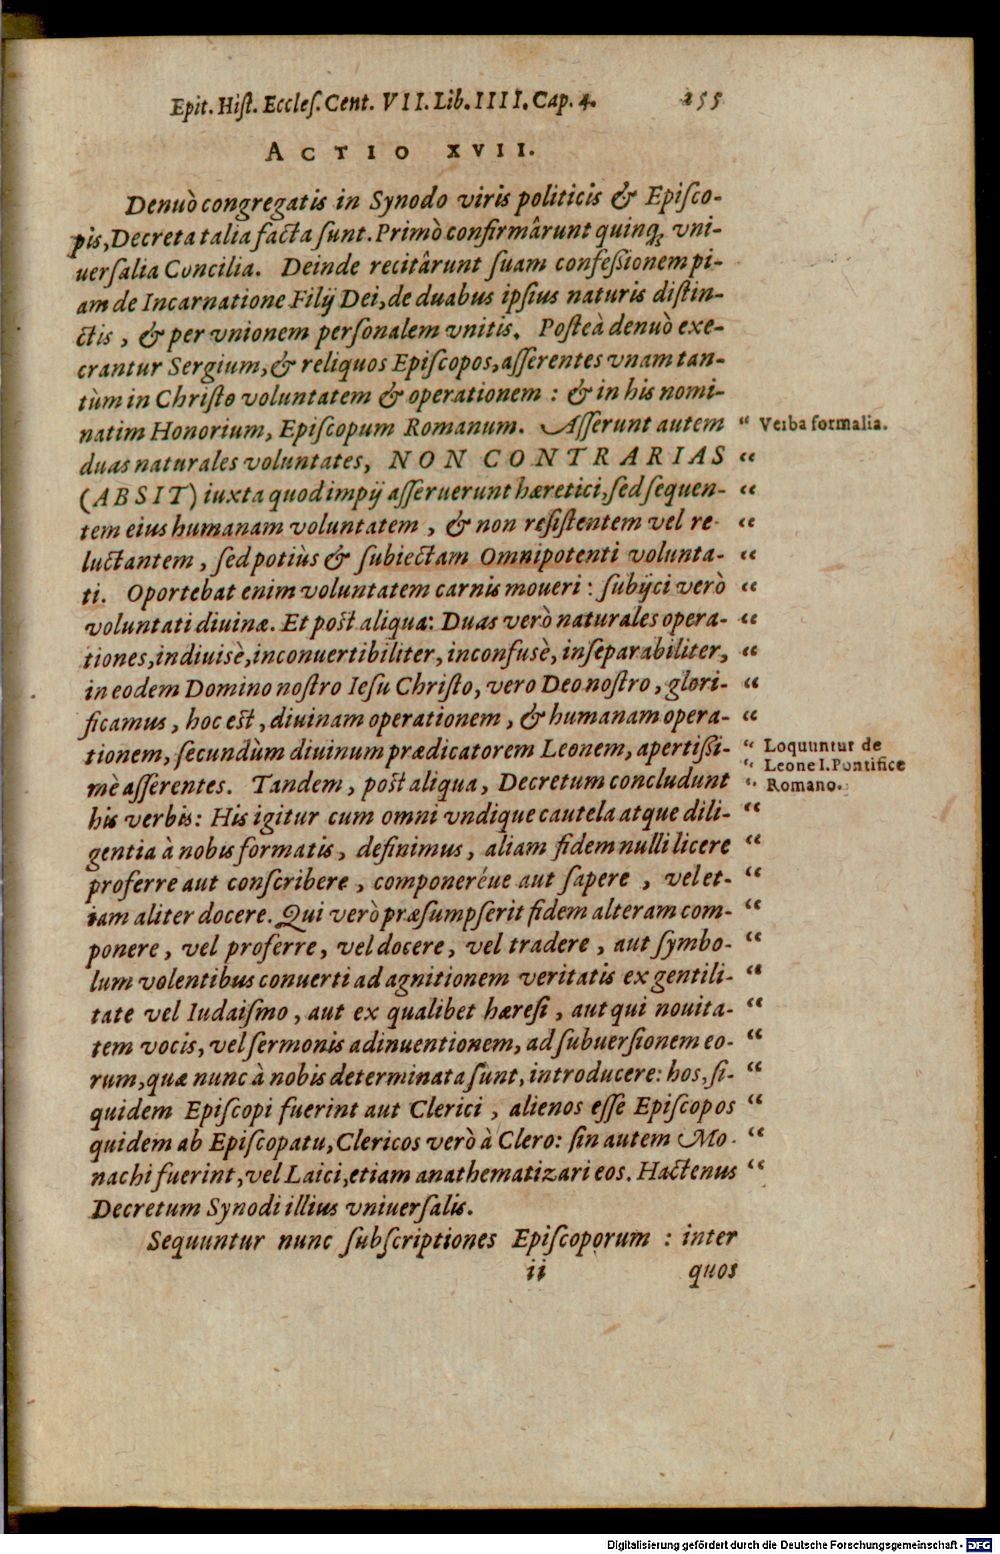 Epit. Hiſt. Eccleſ. Cent. VII. Lib. IIII. Cap. 4. 255
ACTIO XVII.
Denuò congregatis in Synodo viris politicis & Epiſco-
pis, Decreta talia facta ſunt. Primò confirmârunt quinq; vni-
uerſalia Concilia. Deinde recitârunt ſuam confeßionem pi-
am de Incarnatione Filij Dei, de duabus ipſius naturis diſtin-
ctis, & per vnionem perſonalem vnitis. Poſteà denuò exe-
crantur Sergium, & reliquos Epiſcopos, aſſerentes vnam tan-
tùm in Chriſto voluntatem & operationem : & in his nomi-
natim Honorium, Epiſcopum Romanum. Aſſerunt autem “ Verba formalia.
duas naturales voluntates, NON CONTRARIAS “
(ABSIT) iuxta quod impij aſſeruerunt hæretici, ſed ſequen- “
tem eius humanam voluntatem, & non reſiſtentem vel re- “
luctantem, ſed potiùs & ſubiectam Omnipotenti volunta- “
ti. Oportebat enim voluntatem carnis moueri : ſubijci verò “
voluntati diuinæ. Et poſt aliqua: Duas verò naturales opera- “
tiones, indiuisè, inconuertibiliter, inconfusè, inſeparabiliter, “
in eodem Domino noſtro Ieſu Chriſto, vero Deo noſtro, glori- “
ficamus, hoc eſt, diuinam operationem, & humanam opera- “
tionem, ſecundùm diuinum prædicatorem Leonem, apertißi- “ Loquuntur de
mè aſſerentes. Tandem, poſt aliqua, Decretum concludunt “ Leone I. Pontifice
his verbis: His igitur cum omni vndique cautela atque dili- “ Romano.
gentia à nobis formatis, definimus, aliam fidem nulli licere “
proferre aut conſcribere, componeréue aut ſapere, vel et- “
iam aliter docere. Qui verò præſumpſerit fidem alteram com- “
ponere, vel proferre, vel docere, vel tradere, aut ſymbo- “
lum volentibus conuerti ad agnitionem veritatis ex gentili- “
tate vel Iudaiſmo, aut ex qualibet hæreſi, aut qui nouita- “
tem vocis, vel ſermonis adinuentionem, ad ſubuerſionem eo- “
rum, quæ nunc à nobis determinata ſunt, introducere: hos, ſi- “
quidem Epiſcopi fuerint aut Clerici, alienos eſſe Epiſcopos “
quidem ab Epiſcopatu, Clericos verò à Clero: ſin autem Mo- “
nachi fuerint, vel Laici, etiam anathematizari eos. Hactenus “
Decretum Synodi illius vniuerſalis.
Sequuntur nunc ſubſcriptiones Epiſcoporum : inter
ii quos
Digitalisierung gefördert durch die Deutsche Forschungsgemeinschaft - DFG